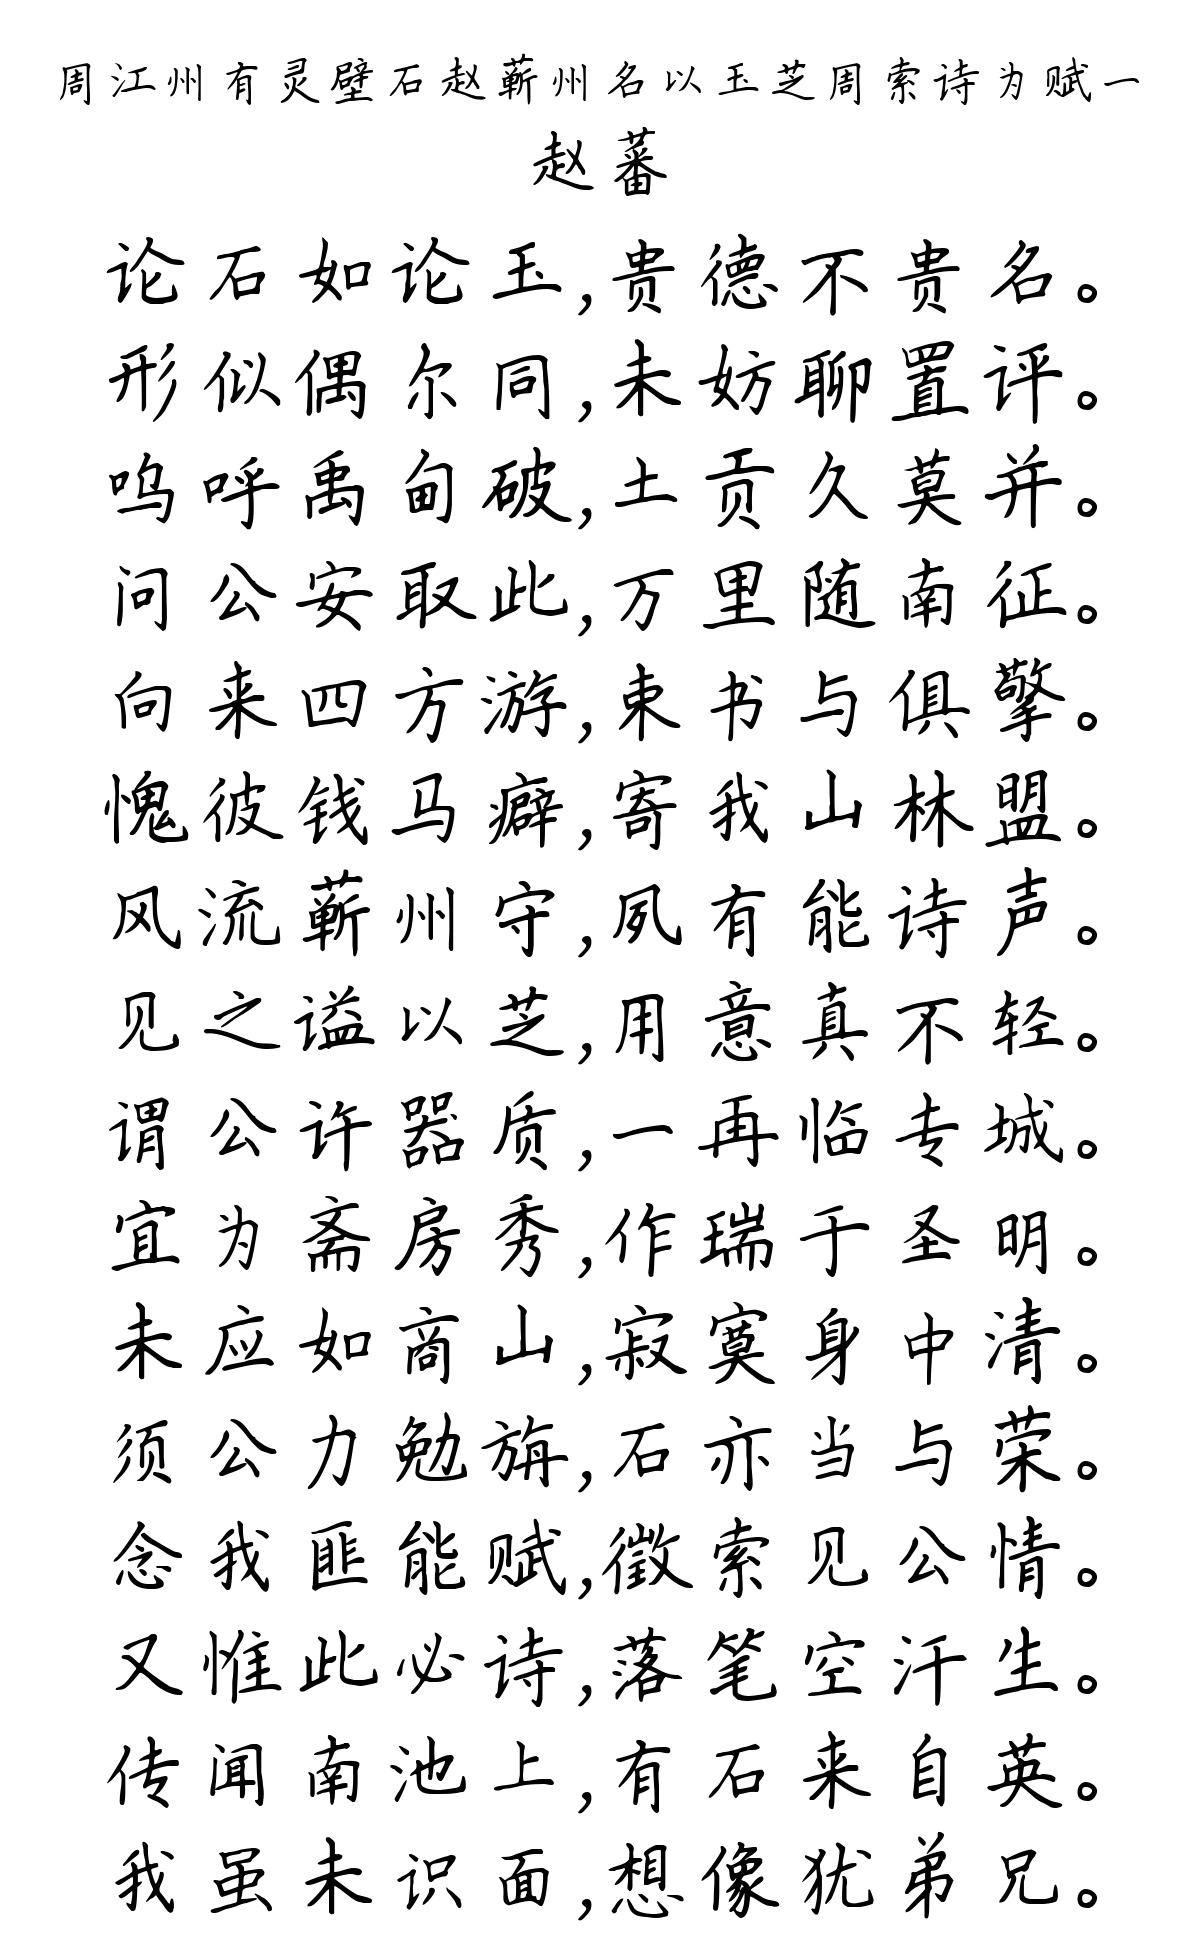 周江州有灵壁石赵蕲州名以玉芝周索诗为赋一
赵蕃
论石如论玉,贵德不贵名。
形似偶尔同,未妨聊置评。
呜呼禹甸破,土贡久莫并。
问公安取此,万里随南征。
向来四方游,束书与俱擎。
愧彼钱马癖,寄我山林盟。
风流蕲州守,夙有能诗声。
见之谥以芝,用意真不轻。
谓公许器质,一再临专城。
宜为斋房秀,作瑞于圣明。
未应如商山,寂寞身中清。
须公力勉旃,石亦当与荣。
念我匪能赋,徵索见公情。
又惟此必诗,落笔空汗生。
传闻南池上,有石来自英。
我虽未识面,想像犹弟兄。